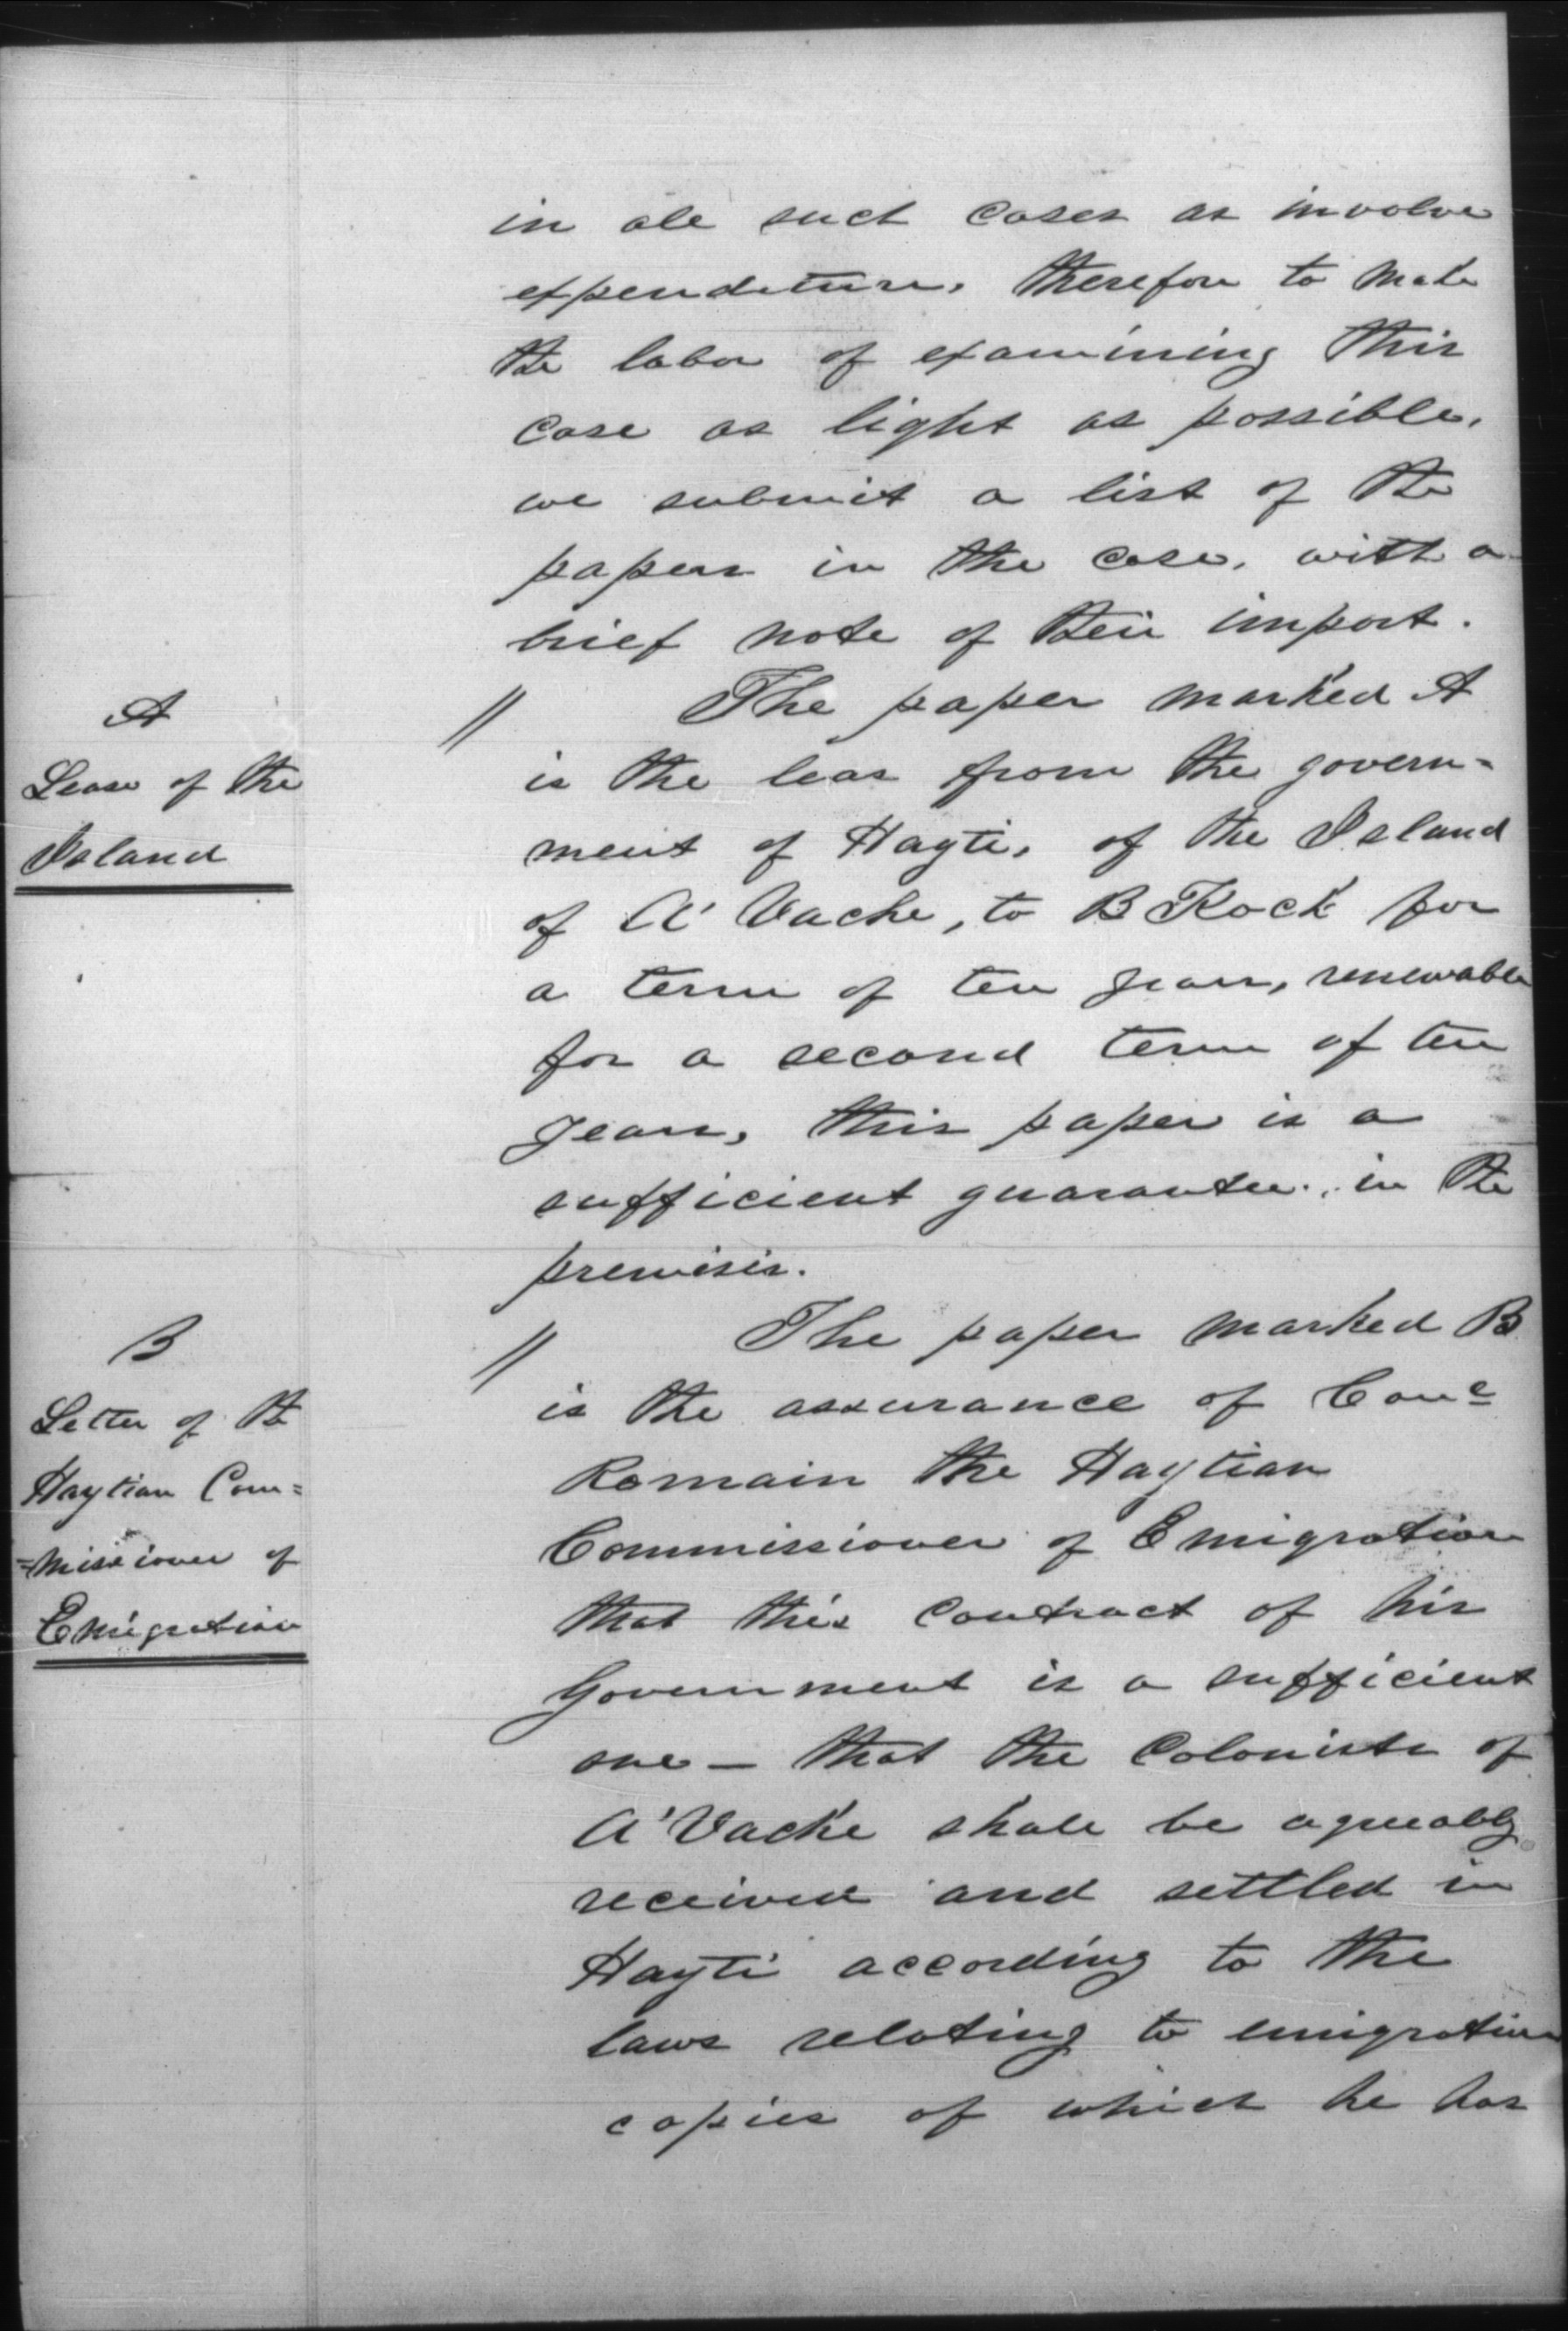 in all such cases as involve
expenditure, therefore to make
the labor of examining this
case as light as possible,
we submit a list of the
papers in the case, with a
brief note of their import.
A
Lease of the
Island
// The paper marked A
is the leas from the govern-
ment of Hayti, of the Island
of A'Vache, to B Kock for
a term of ten years, renewable
for a second term of ten
years, this paper is a
sufficient guarantee, in the
premisis.
B
Letter of the
Haytian Com=
=missioner of
Emigration
// The paper marked B
is the assurance of
Romain the Haytian
Commissioner of Emigration
that this contract of his
Government is a sufficient
one – that the Colonists of
A'Vache shall be agreeably
received and settled in
Hayti according to the
laws relating to emigration
copies of which he has